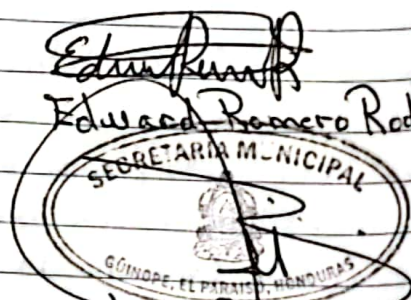 Edward Romero Rod
SECRETARIA MUNICIPAL
GÜINOPE, EL PARAISO, HONDURAS